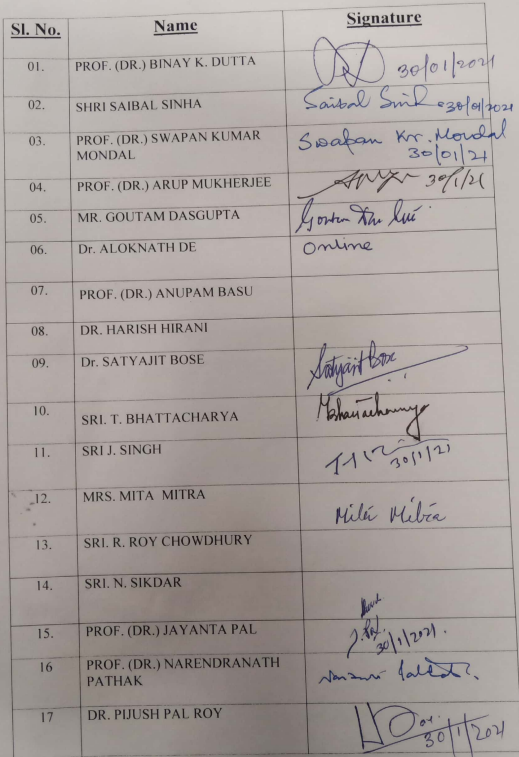 Sl. No. Name Signature
01. PROF. (DR.) BINAY K. DUTTA 30/01/2021
02. SHRI SAIBAL SINHA Saibal Sinh 30/01/2021
03. PROF. (DR.) SWAPAN KUMAR Swapan Kr. Mondal
MONDAL 30/01/21
04. PROF. (DR.) ARUP MUKHERJEE 30/1/21
05. MR. GOUTAM DASGUPTA
06. Dr. ALOKNATH DE Online
07. PROF. (DR.) ANUPAM BASU
08. DR. HARISH HIRANI
09. Dr. SATYAJIT BOSE Satyajit Bose
10. SRI. T. BHATTACHARYA
11. SRI J. SINGH 30/1/21
12. MRS. MITA MITRA Mita Mitra
13. SRI. R. ROY CHOWDHURY
14. SRI. N. SIKDAR
15. PROF. (DR.) JAYANTA PAL J. Pal
30/1/2021.
16 PROF. (DR.) NARENDRANATH
PATHAK
17 DR. PIJUSH PAL ROY
30/1/2021